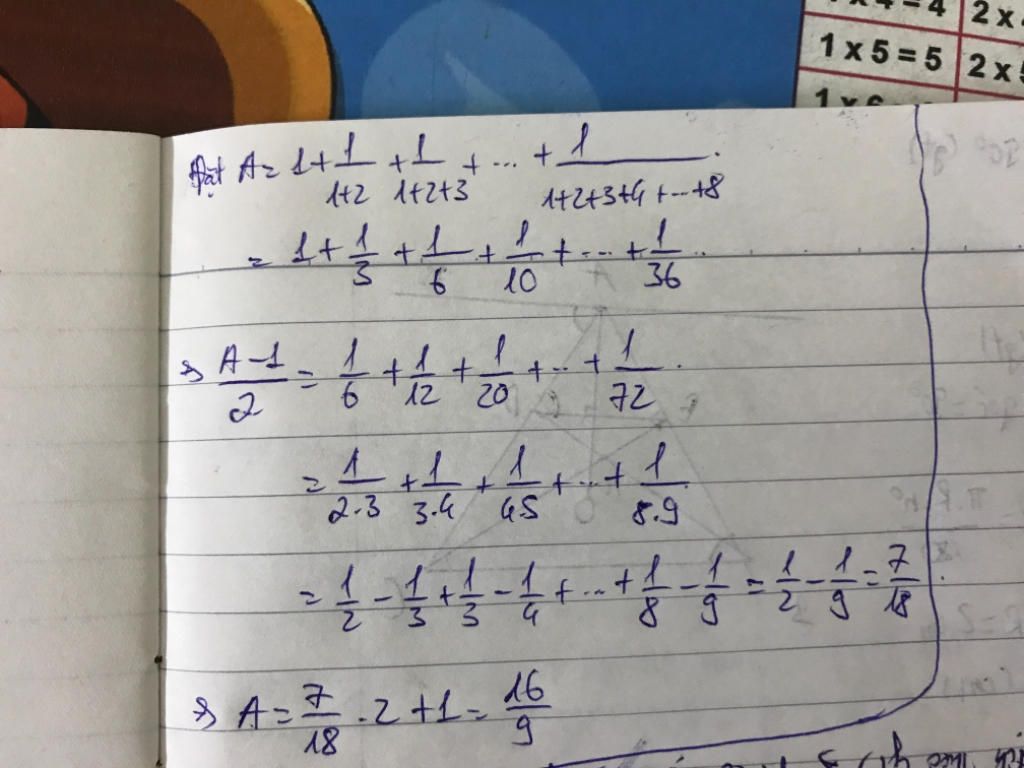 1 x 4 = 4 2 x
1 x 5 = 5 2 x 5
1 x 6
Đặt A = 1 + 1/(1+2) + 1/(1+2+3) + ... + 1/(1+2+3+4+...+8).
= 1 + 1/3 + 1/6 + 1/10 + ... + 1/36 ..
=> (A-1)/2 = 1/6 + 1/12 + 1/20 + ... + 1/72 .
= 1/(2.3) + 1/(3.4) + 1/(4.5) + ... + 1/(8.9)
= 1/2 - 1/3 + 1/3 - 1/4 + ... + 1/8 - 1/9 = 1/2 - 1/9 = 7/18 .
=> A = 7/18 . 2 + 1 = 16/9